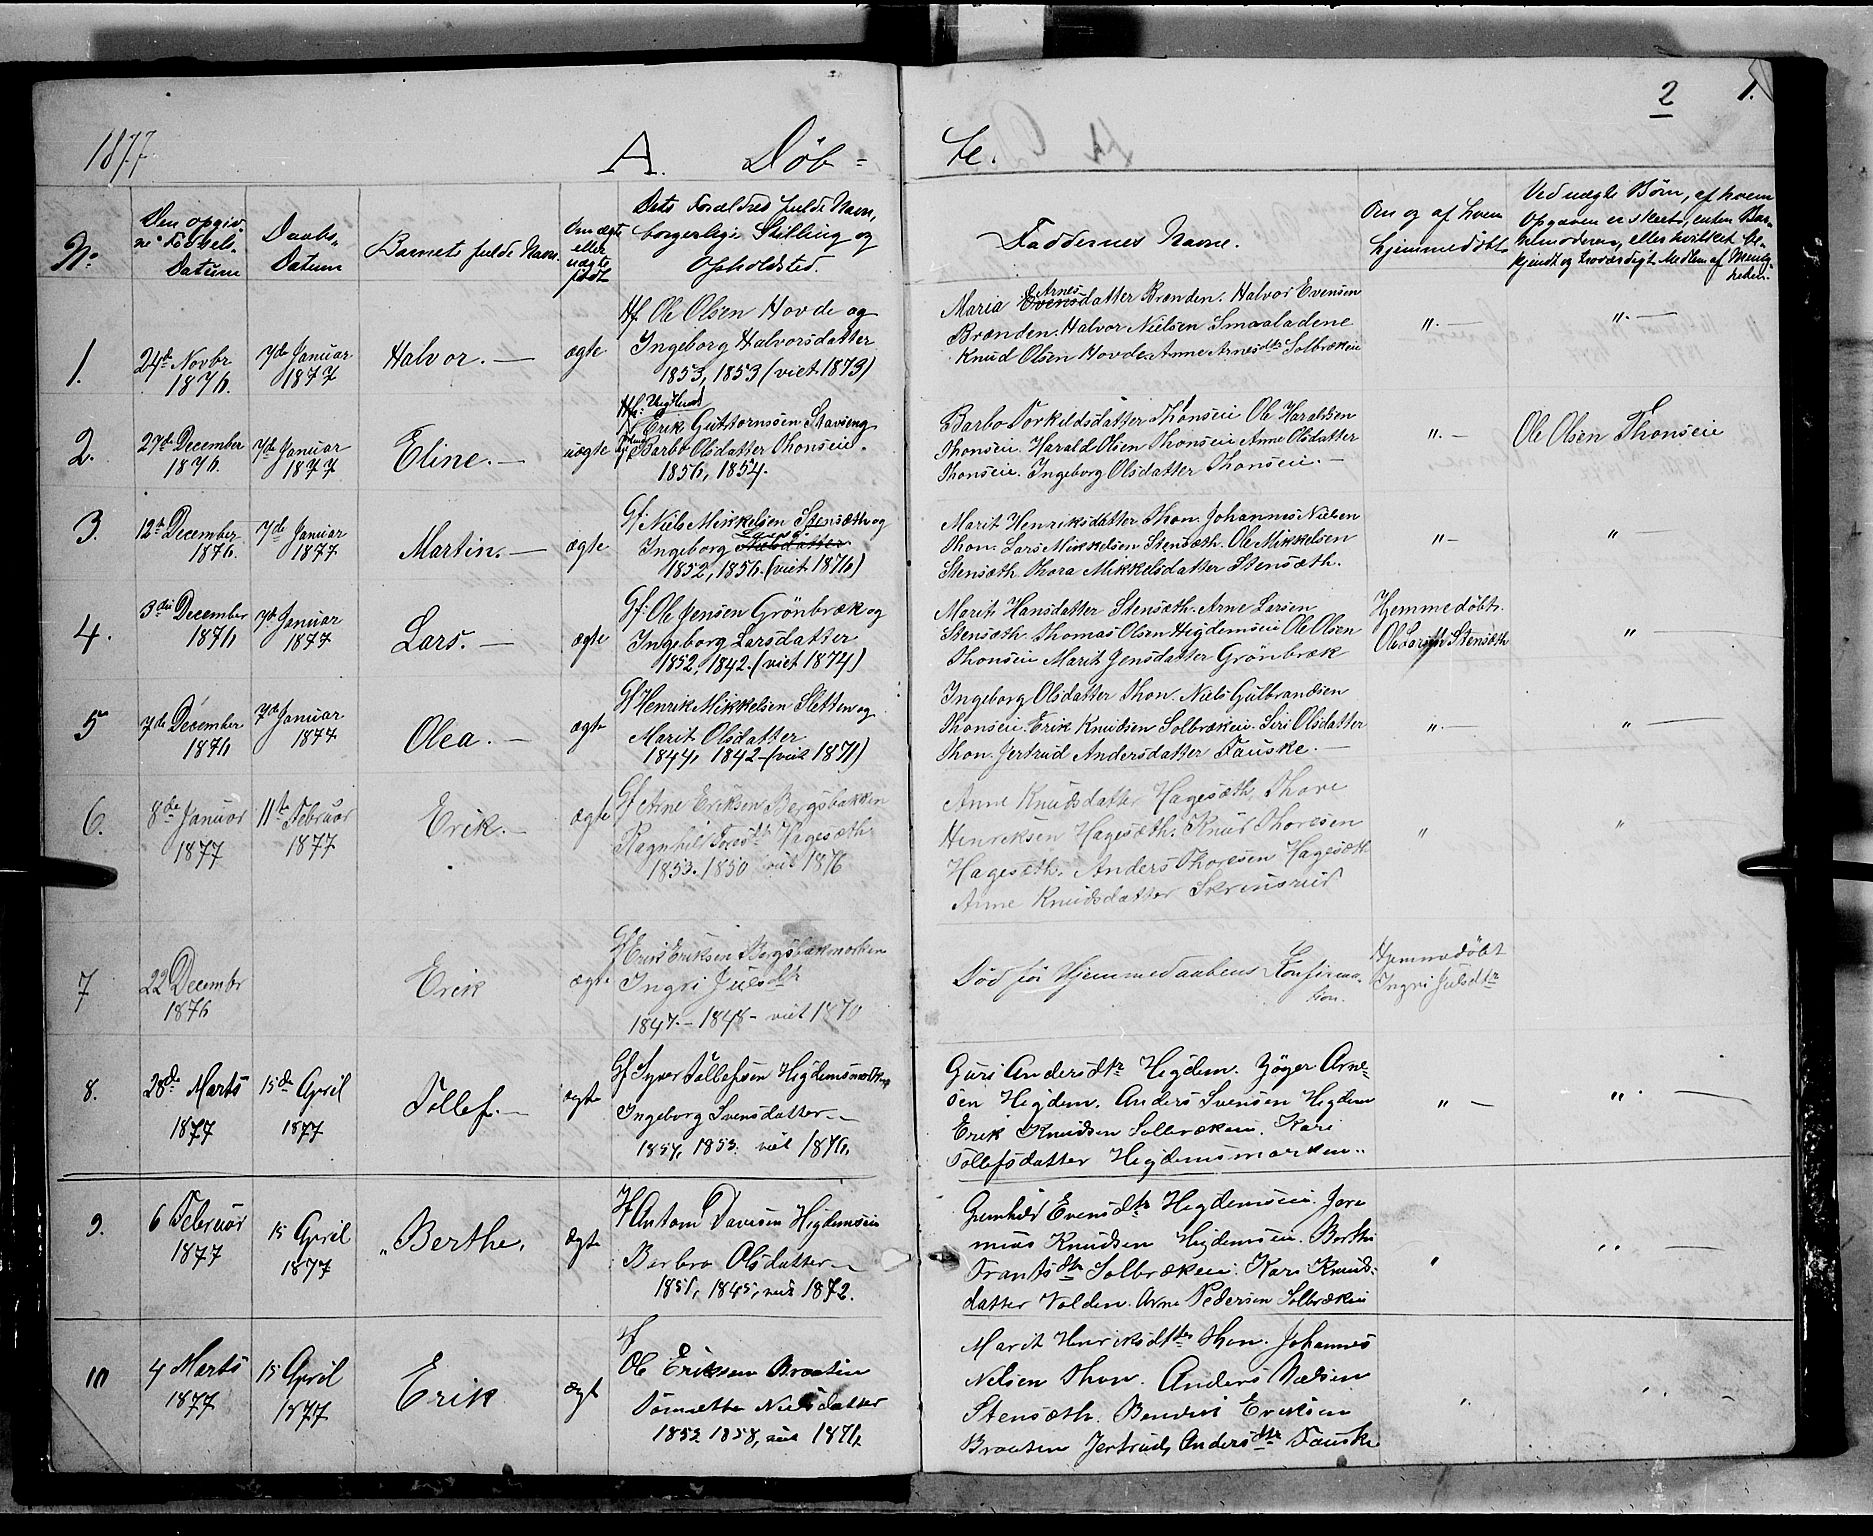 2
1.
1877
A.
Døb=
te.
No.
Den opgiv-
ne Fødsels-
Datum
Daabs-
Datum
Barnets fulde Navn.
Om ægte
eller
uægte
født
Dets Forældres fulde Navn,
borgerlige Stilling og
Opholdsted.
Faddernes Navne.
Om og af hvem
hjemmedøbt
Ved uægte Børn, af hvem
Opgaven er skeet, enten Bar-
nemoderen, eller hvilket be-
kjendt og troværdigt Medlem af Menig-
heden.
1.
24de Novbr
1876.
7de Januar
1877
Halvor.
ægte
Hf. Ole Olsen Hovde og
Ingeborg Halvorsdatter
1853, 1853 (viet 1873)
Maria Evensdatter Arnes Brænden. Halvor Evensen
Brænden. Halvor Nielsen Smaaladene
Knud Olsen Hovde. Anne Arnesdtr Solbrækeie
"
"
2.
27de December
1876.
7de Januar
1877
Eline.
uægte
Ungkarl
Erik Guttormsen Stavseng
Barbo Olsdatter Thonseie.
1856, 1854.
Barbo Torkeldsdatter Thonseie Ole Haraldsen
Thonseie. Harald Olsen Thonseie Anne Olsdatter
Thonseie. Ingeborg Olsdatter Thonseie.
"
Ole Olsen Thonseie
3.
12te December
1876.
7de Januar
1877
Martin.
ægte
Gf. Niels Mikkelsen Stensæth og
Ingeborg Nielsdatter
1852, 1856. (viet 1876)
Marit Henriksdatter Thon. Johannes Nielsen
Thon. Lars Mikkelsen Stensæth. Ole Mikkelsen
Stensæth Thora Mikkelsdatter Stensæth.
"
"
4.
3die December
1876
7de Januar
1877
Lars.
ægte
Gf. Ole Jensen Grönbræk og
Ingeborg Larsdatter
1852, 1842. (viet 1874)
Marit Hansdatter Stensæth. Arne Larsen
Stensæth. Thomas Olsen Higdemseie Ole Olsen
Thonseie Marit Jensdatter Grönbræk
Hjemmedøbt.
Ole Larsen Stensæth
"
5
7de December
1876
7de Januar
1877
Olea.
ægte
Gf Henrik Mikkelsen Sletten og
Marit Olsdatter
1844, 1842 (viet 1871)
Ingeborg Olsdatter Thon. Niels Gulbrandsen
Thonseie. Erik Knudsen Solbrækeie. Siri Olsdatter
Thon. Jertrud Andersdatter Fauske.
"
"
6.
8de Januar
1877
11te Februar
1877
Erik.
ægte
Gf Arne Eriksen Bergsbakken
Ragnhild Toresdtr Hagesæth
1853. 1850 viet 1876
Anne Knudsdatter Hagesæth, Thore
Henriksen Hagesæth. Knud Thoresen
Hagesæth. Anders Thoresen Hagesæth
Anne Knudsdatter Skrinsrud
"
"
7
22 Decembr
1876
Erik
ægte
Gf Erik Eriksen Bergsbakmarken
Ingri Julsdtr
1847 - 1848 - viet 1870
Död för Hjemmedaabens Konfirma-
tion.
Hjemmedöbt
Ingri Julsdtr
8.
28de Marts
1877
15de April
1877
Tollef.
ægte
Gf Syver Tollefsen Higdemsmarken
Ingeborg Svensdatter
1857, 1853. viet 1876,
Guri Andersdtr Higdem. Jöger Arne-
sen Higdem. Anders Svensen Higdem
Erik Knudsen Solbrækeie. Kari
Tollefsdatter Higdemsmarken.
"
"
9.
6 Februar
1877
15 April
1877
Berthe.
ægte
Hf Anton Davisen Higdemseie
Barbro Olsdatter
1851, 1845, viet 1872.
Gunhild Evensdtr Higdemseie. Jere
mias Knudsen Higdemseie. Berthe
Frantsdtr Solbrækeie. Kari Knuds-
datter Volden. Arne Pedersen Solbrækeie
"
"
10
4 Marts
1877
15 April
1877
Erik
ægt
Gf
Ole Eriksen Braaten
Tomette Nielsdatter
1852 1858, viet 1876
Marit Henriksdtter Thon. Johannes
Nelsen Thon. Anders Nielsen
Stensæth. Bendik Eriksen
Braaten Jertrud Andersdtr Fauske
"
"